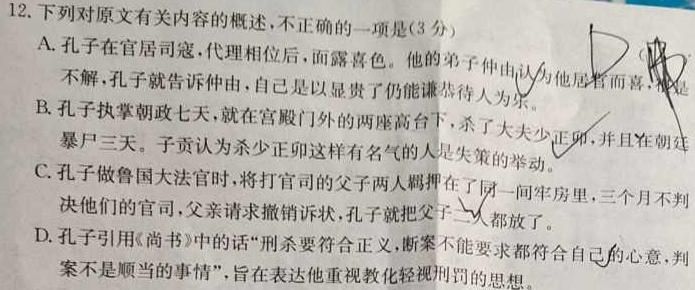 12. 下列对原文有关内容的概述,不正确的一项是(3分)
A. 孔子在官居司寇,代理相位后,面露喜色。他的弟子仲由认为他居官而喜,很是
不解,孔子就告诉仲由,自己是以显贵了仍能谦恭待人为乐。
B. 孔子执掌朝政七天,就在宫殿门外的两座高台下,杀了大夫少正卯,并且在朝廷
暴尸三天。子贡认为杀少正卯这样有名气的人是失策的举动。
C. 孔子做鲁国大法官时,将打官司的父子两人羁押在了同一间牢房里,三个月不判
决他们的官司,父亲请求撤销诉状,孔子就把父子二人都放了。
D. 孔子引用《尚书》中的话“刑杀要符合正义,断案不能要求都符合自己的心意,判
案不是顺当的事情”,旨在表达他重视教化轻视刑罚的思想。